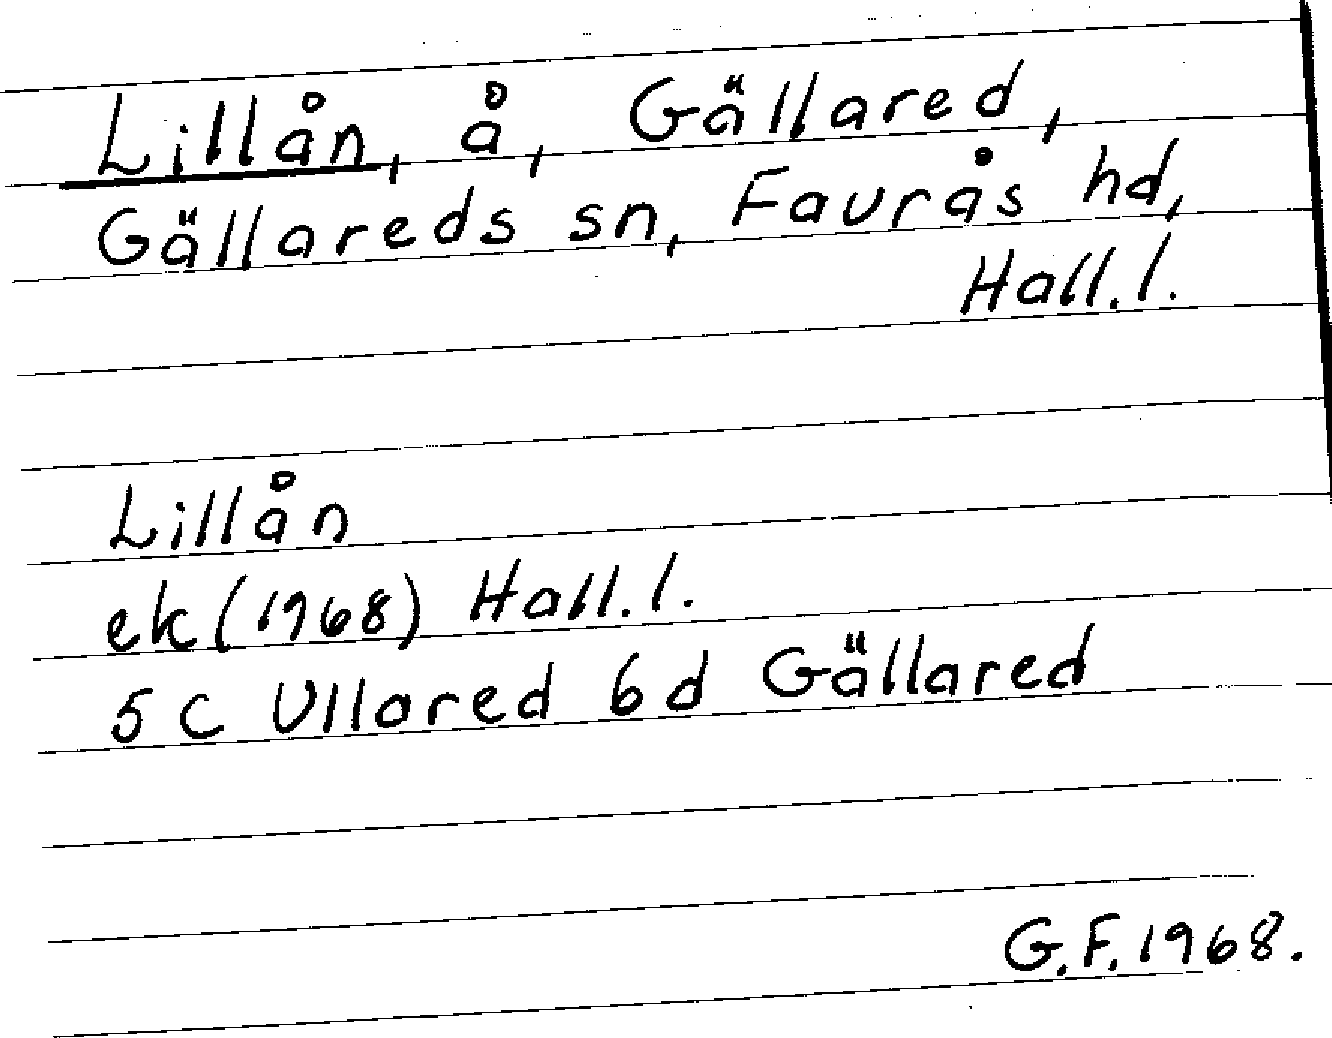 Lillån, å, Gällared,
Gällareds sn, Faurås hd,
Hall.l.
Lillån
ek (1968) Hall.l.
5 c Ullared 6 d Gällared
G.F. 1968.